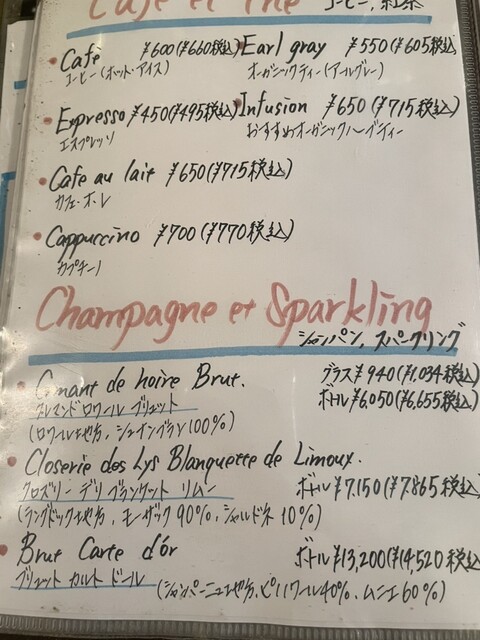 Café et Thé コーヒー, 紅茶
Café ¥600(¥660税込)
コーヒー(ホット・アイス)
Earl gray ¥550(¥605税込)
オーガニックティー(アールグレー)
Expresso ¥450(¥495税込)
エスプレッソ
Infusion ¥650(¥715税込)
おすすめオーガニックハーブティー
Cafe au lait ¥650(¥715税込)
カフェ・オ・レ
Cappuccino ¥700(¥770税込)
カプチーノ
Champagne et Sparkling
シャンパン, スパークリング
Cmant de hoire Brut. グラス¥940(¥1,034税込)
クレマンド ロワール ブリュット ボトル¥6,050(¥6,655税込)
(ロワール地方, シュナンブラン100%)
Closerie des Lys Blanquette de Limoux.
クロズリー デリ ブランケット リムー ボトル¥7,150(¥7,865税込)
(ラングドック地方, モーザック90%, シャルドネ10%)
Brut Carte d'ór ボトル¥13,200(¥14,520税込
ブリュット カルト ドール (シャンパーニュ地方, ピノノワール40%, ムニエ60%)